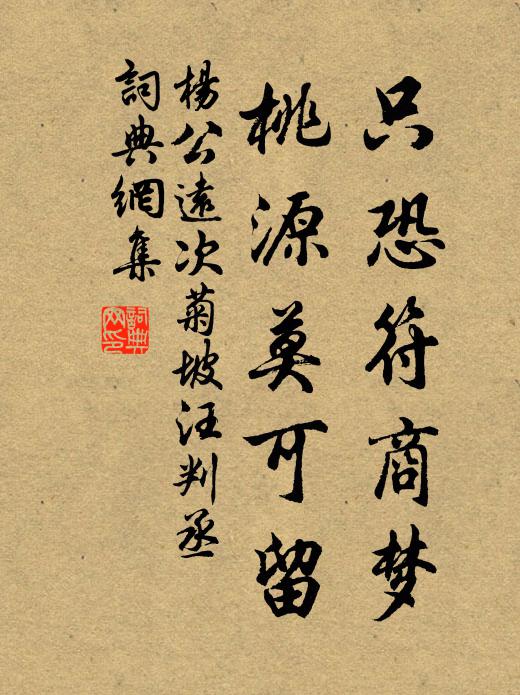 只恐符商梦
桃源莫可留
楊公遠次菊坡汪判丞
詞典網集
詞典网印